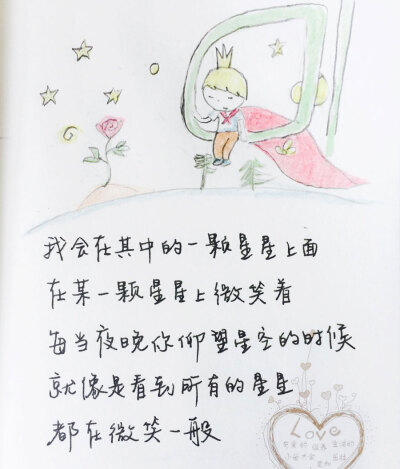 我会在其中的一颗星星上面
在某一颗星星上微笑着
每当夜晚你仰望星空的时候
就像是看到所有的星星
都在微笑一般
Love